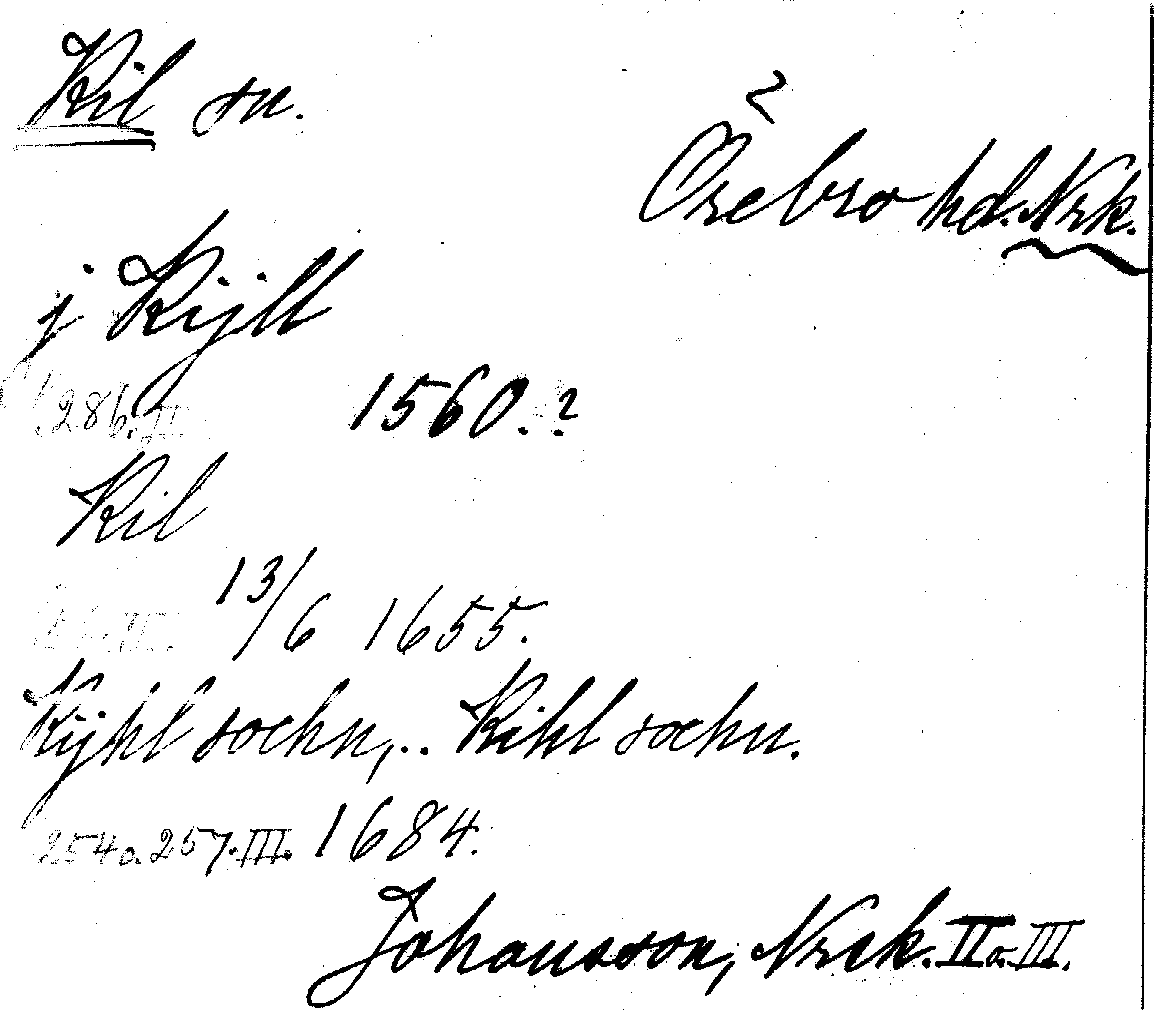 Kil sn.
Örebro hd. Nrk.
j Kijll
286. II 1560.?
Kil
13/6 1655.
Kijhl sochn,.. Kihl sochn.
254 o. 257. III. 1684.
Johansson, Nrck. II o. III.